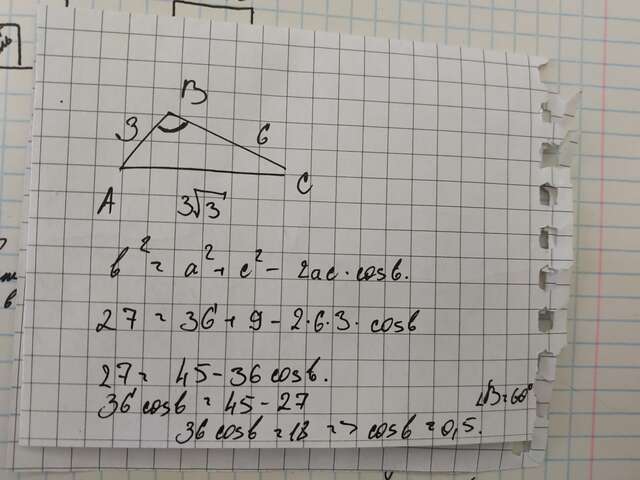 B
3
6
A
C
3√3
b² = a² + c² - 2ac · cosb.
27 = 36 + 9 - 2·6·3· cosb
27 = 45 - 36 cosb.
36 cosb = 45 - 27
∠B = 60°
36 cosb = 18 => cosb = 0,5.